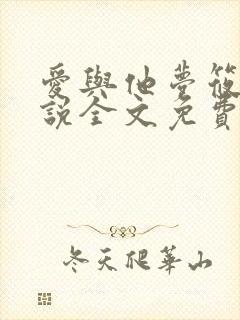 愛與他夢筱
說全文免費
冬天爬華山